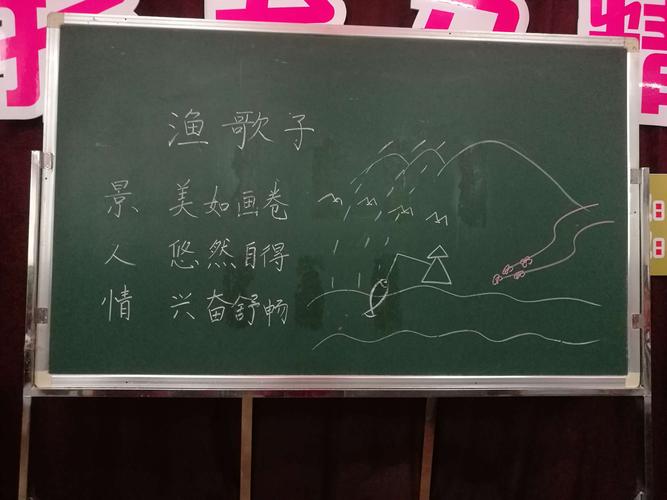 渔歌子
景 美如画卷
人 悠然自得
情 兴奋舒畅